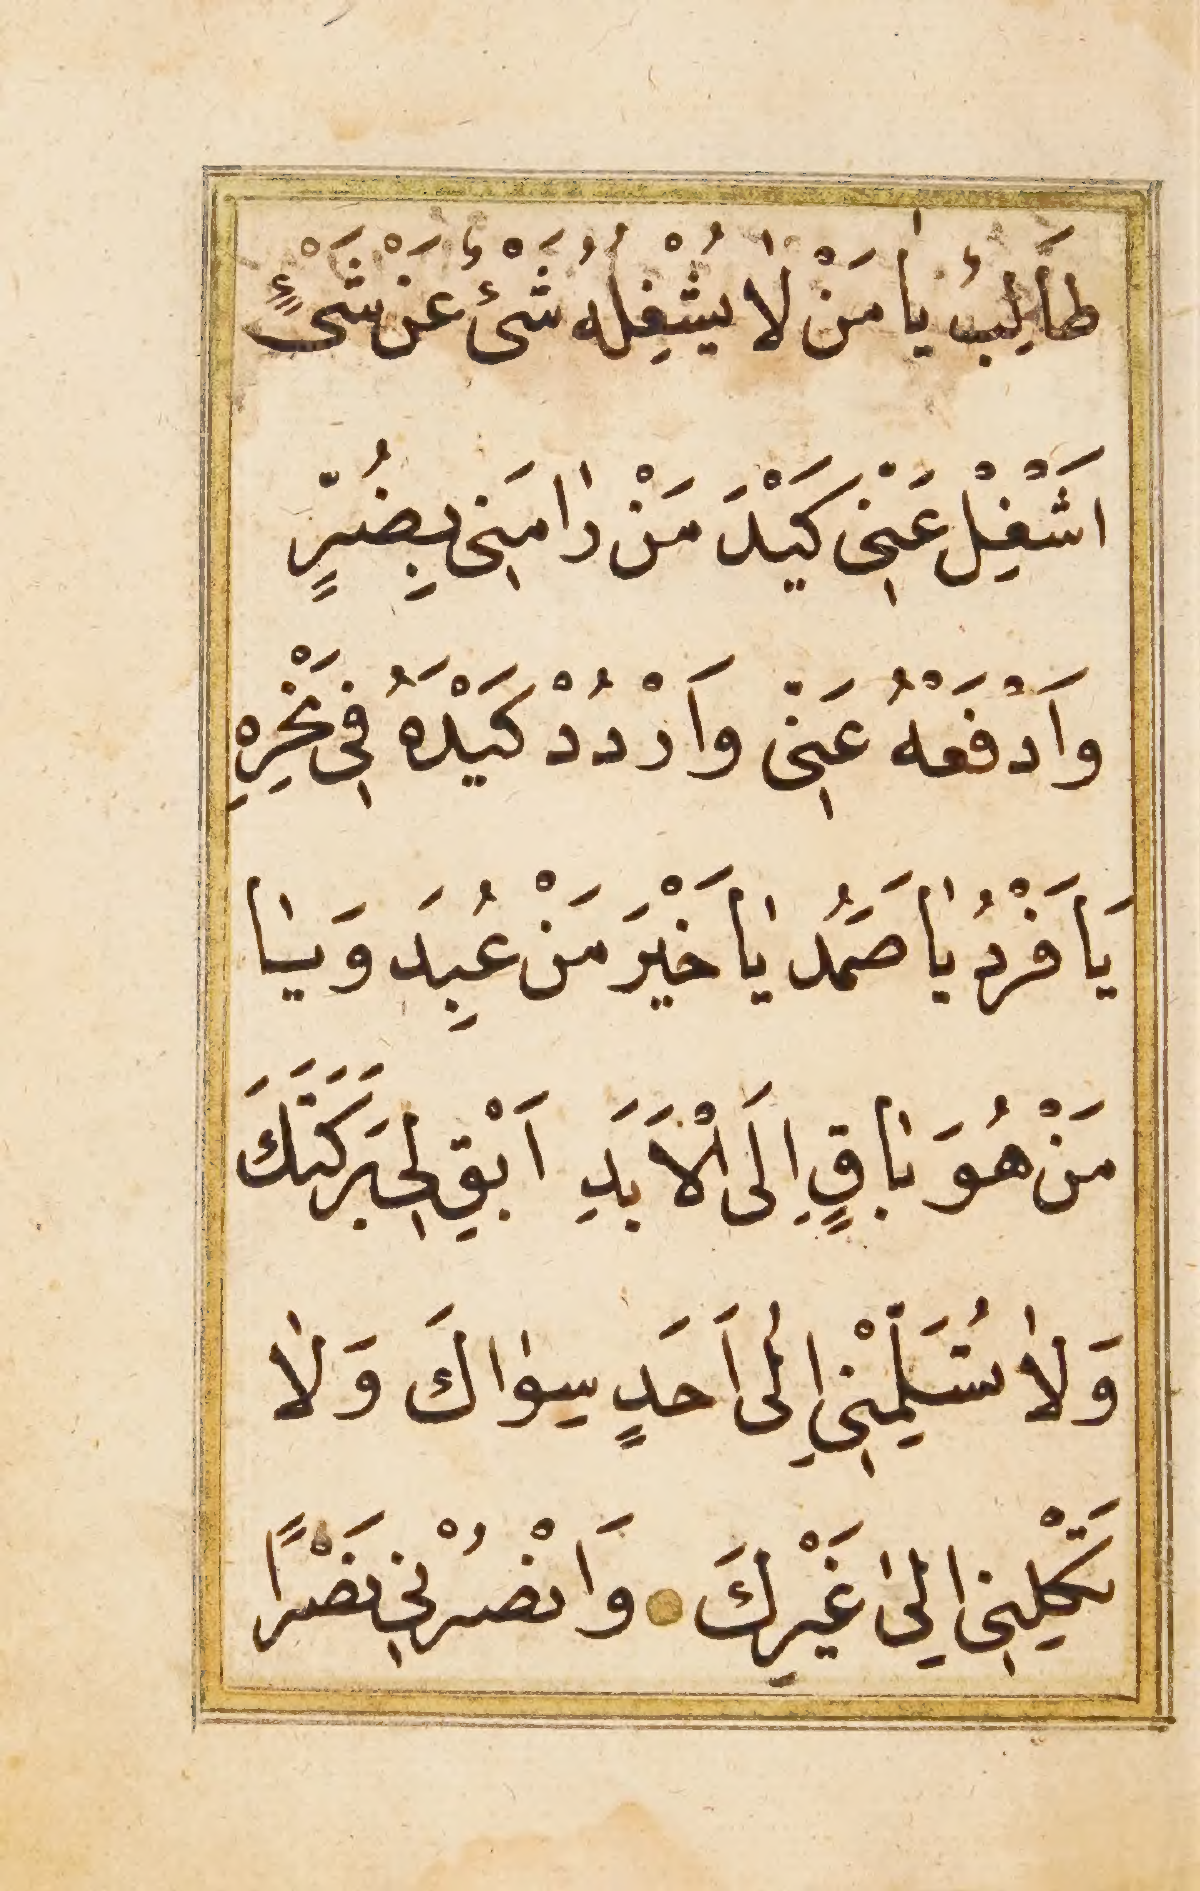 طَالِبُ يَا مَنْ لَا يُشْغِلُهُ شَىْءٌ عَنْ شَىْءٍ
اَشْغِلْ عَنّٖى كَيْدَ مَنْ رَامَنٖى بِضُرٍّ
وَاَدْفَعْهُ عَنّٖى وَاَرْدُدْ كَيْدَهُ فٖى نَحْرِهِ
يَا فَرْدُ يَا صَمَدُ يَا خَيْرَ مَنْ عُبِدَ وَيَا
مَنْ هُوَ بَاقٍ اِلَى الْاَبَدِ اَبْقِ لٖى بَرَكَتَكَ
وَلَا تُسَلِّمْنٖى اِلٰى اَحَدٍ سِوَاكَ وَلَا
تَكِلْنٖى اِلٰى غَيْرِكَ وَانْصُرْنٖى نَصْرًا